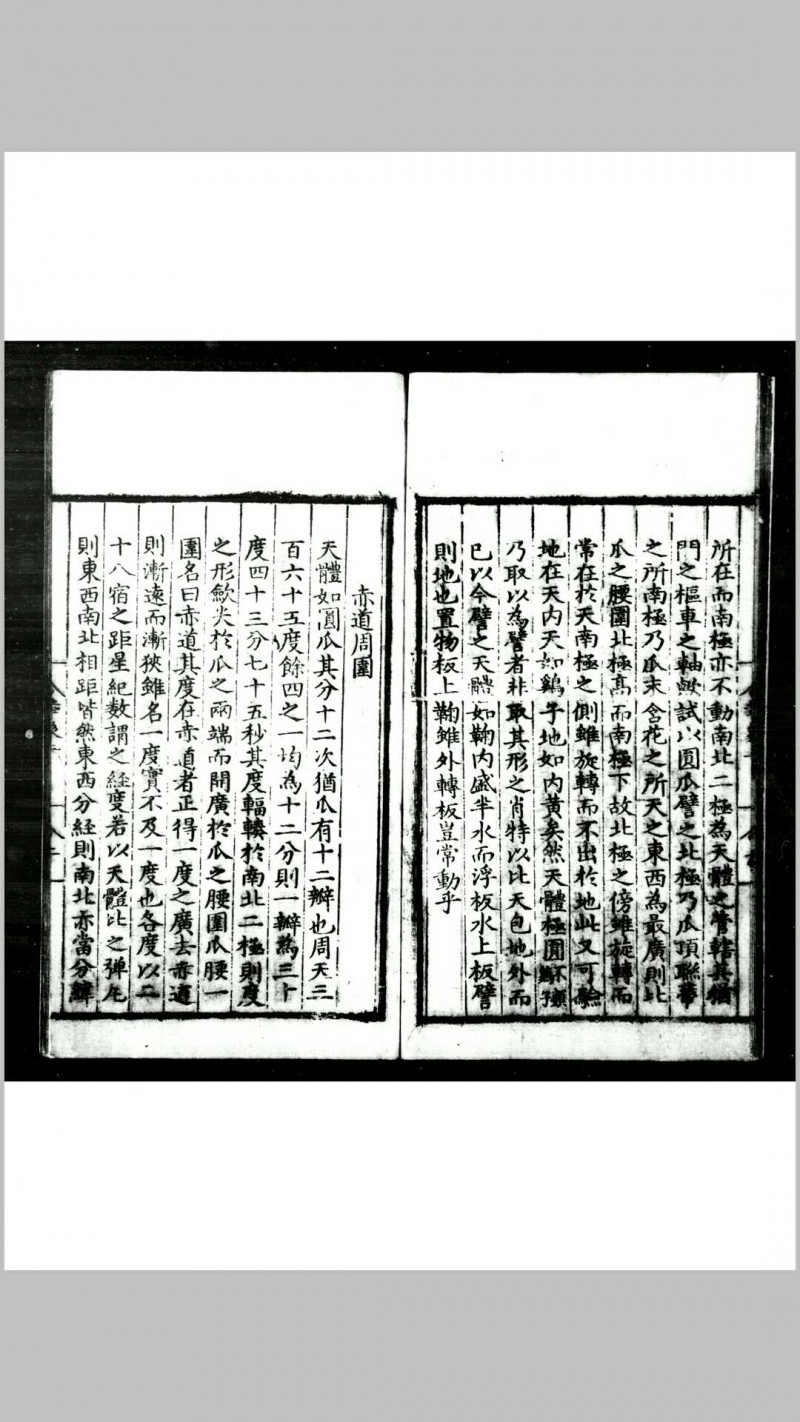 所在而南極亦不動南北二極為天體之管轄其猶
門之樞車之軸歟試以圓瓜譬之北極乃瓜頂聯蔕
之所南極乃瓜末含花之所天之東西為最廣則比
瓜之腰圍北極髙而南極下故北極之傍雖旋轉而
常在於天南極之側雖旋轉而不出於地此又可驗
地在天内天如鷄子地如内黄矣然天體極圓
乃取以為譬者非取其形之肖特以比天包地外而
已以今譬之天體如鞠内盛半水而浮板水上板譬
則地也置物板上鞠雖外轉板豈常動乎
赤道周圍
天體如圓瓜其分十二次猶瓜有十二瓣也周天三
百六十五度餘四之一均為十二分則一瓣為三十
度四十三分七十五秒其度輻輳於南北二極則度
之形歛尖於瓜之兩端而開廣於瓜之腰圍瓜腰一
圍名曰赤道其度在赤道者正得一度之廣去赤道
則漸遠而漸狹雖名一度實不及一度也各度以二
十八宿之距星紀数謂之經度若以天體比之彈丸
則東西南北相距皆然東西分經則南北亦當分緯